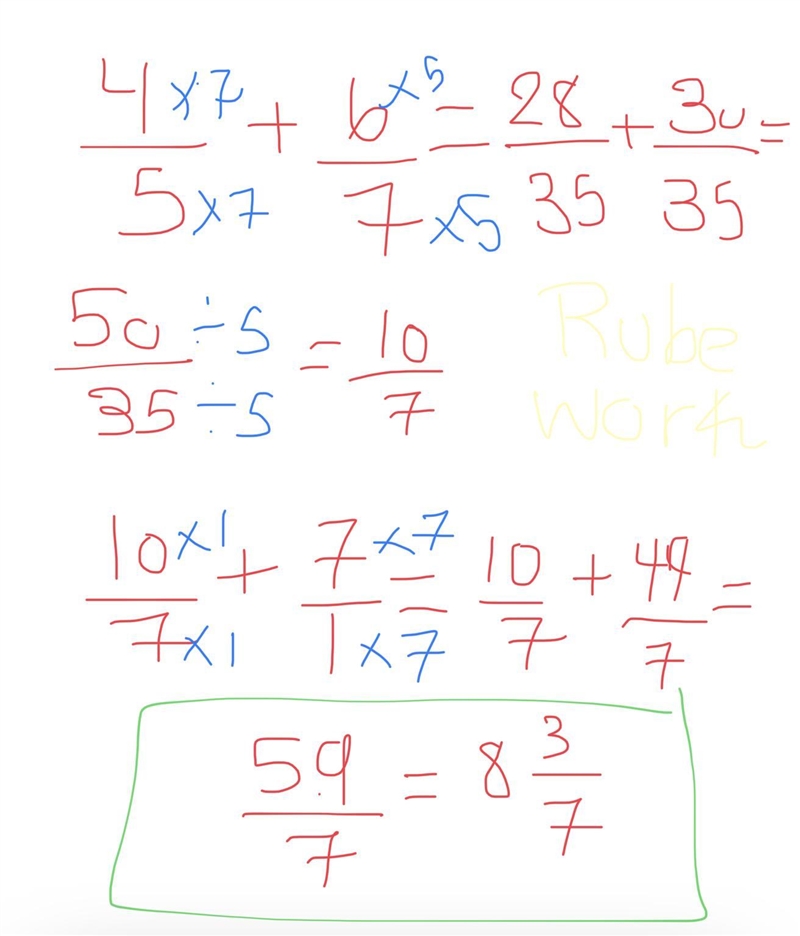 4×7/5×7 + 6×5/7×5 = 28/35 + 30/35 =
50÷5/35÷5 = 10/7
Rube
Work
10×1/7×1 + 7×7/1×7 = 10/7 + 49/7 =
59/7 = 8 3/7